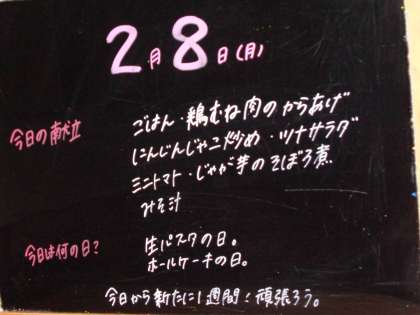 2月8日(月)
今日の献立
ごはん・鶏むね肉のからあげ
にんじんじゃこ炒め・ツナサラダ
ミニトマト・じゃが芋のそぼろ煮
みそ汁
今日は何の日?
生パスタの日。
ホールケーキの日。
今日から新たに1週間!頑張ろう。